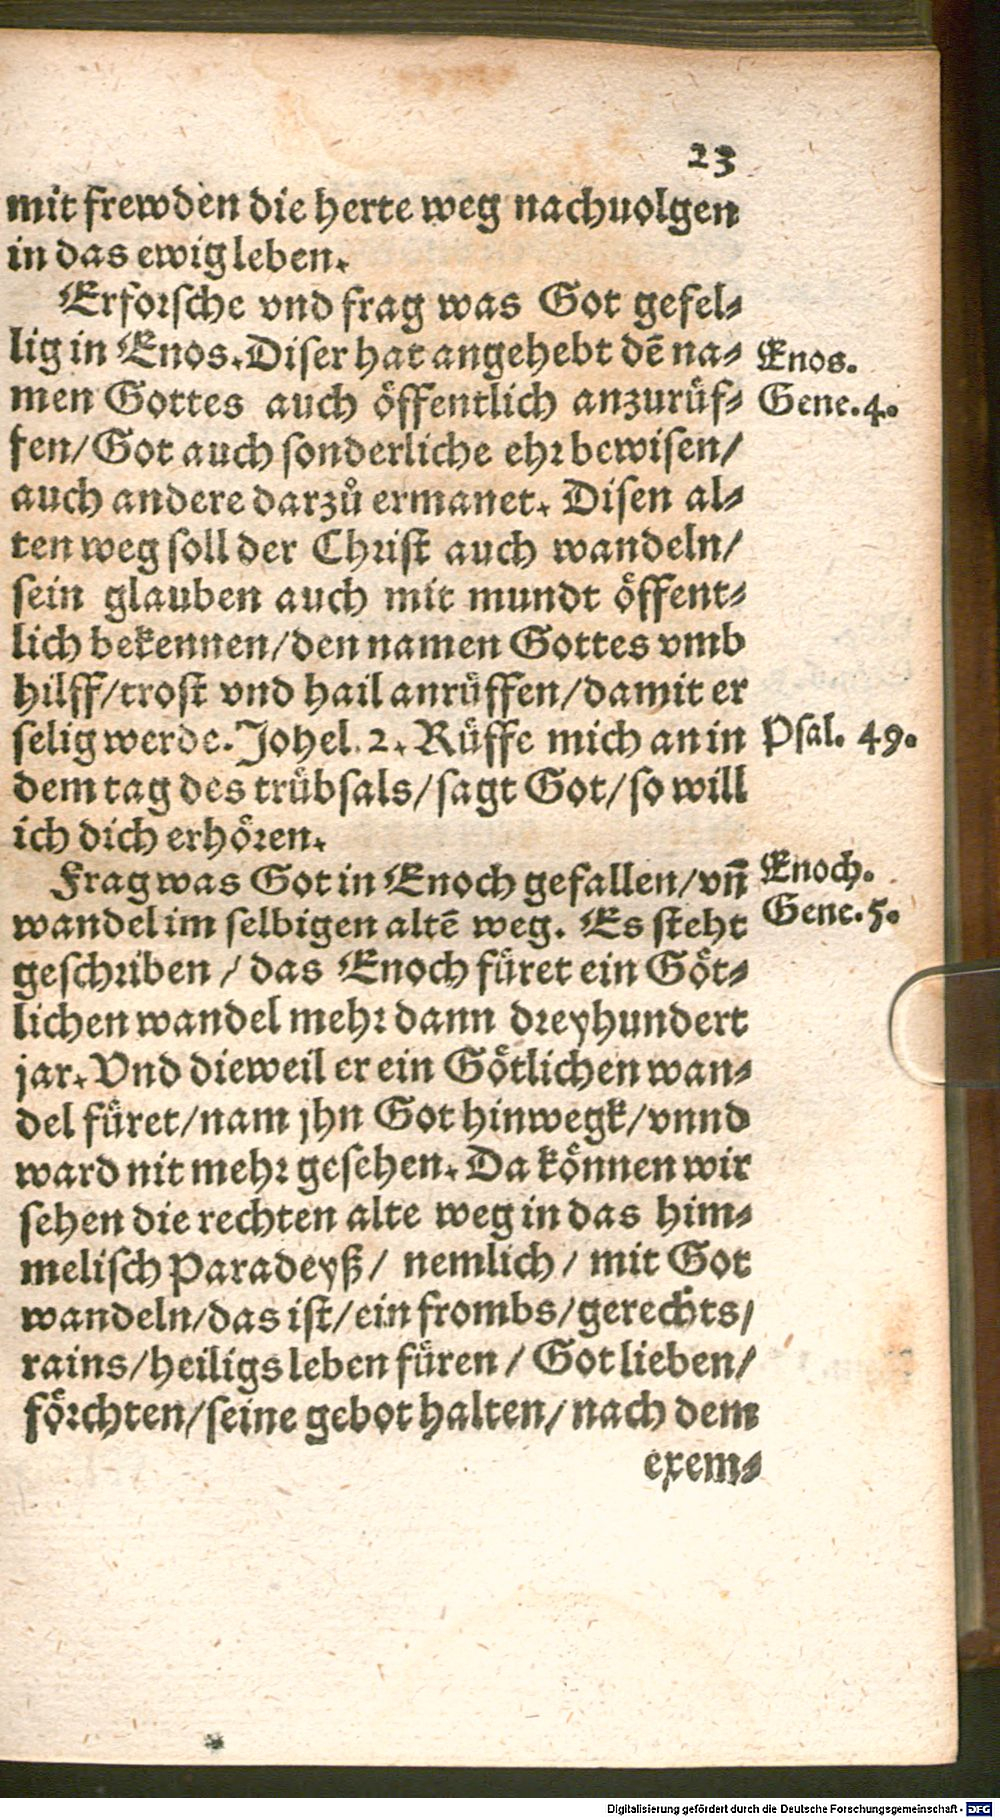 23
mit frewden die herte weg nachuolgen
in das ewig leben.
Erforsche vnd frag was Got gefel⸗
lig in Enos. Diser hat angehebt dẽ na⸗
Enos.
men Gottes auch öffentlich anzurüf⸗
Gene. 4.
fen/ Got auch sonderliche ehr bewisen/
auch andere darzů ermanet. Disen al⸗
ten weg soll der Christ auch wandeln/
sein glauben auch mit mundt öffent⸗
lich bekennen/ den namen Gottes vmb
hilff/ trost vnd hail anrüffen/ damit er
selig werde. Johel. 2. Rüffe mich an in
Psal. 49.
dem tag des trübsals/ sagt Got/ so will
ich dich erhören.
Frag was Got in Enoch gefallen/ vñ
Enoch.
wandel im selbigen altẽ weg. Es steht
Gene. 5.
geschriben / das Enoch füret ein Göt⸗
lichen wandel mehr dann dreyhundert
jar. Vnd dieweil er ein Götlichen wan⸗
del füret/ nam jhn Got hinwegk/ vnnd
ward nit mehr gesehen. Da können wir
sehen die rechten alte weg in das him⸗
melisch Paradeyß/ nemlich / mit Got
wandeln/ das ist/ ein frombs/ gerechts/
rains/ heiligs leben füren / Got lieben/
förchten/ seine gebot halten/ nach dem
exem⸗
Digitalisierung gefördert durch die Deutsche Forschungsgemeinschaft - DFG